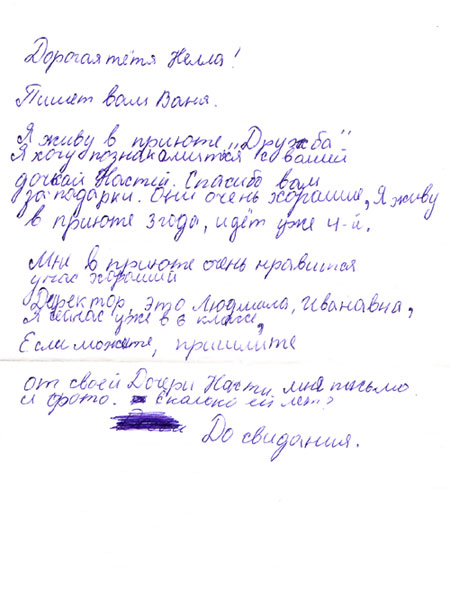 Дорогая тётя Нелла!
Пишет вам Ваня.
Я живу в приюте „Дружба"
Я хочу познакамится с вашей
дочкай Настей. Спасибо вам
за подарки. Они очень хорошие, Я живу
в приюте 3 года, идёт уже 4-й.
Мне в приюте очень нравится
у нас хороший
Деректор, это Людмила, Иванавна,
Я сейчас уже в 6 класе,
Если можете, пришлите
от своей Дочери Насти, мне письмо
и фото. Сколько ей лет?
До свидания.